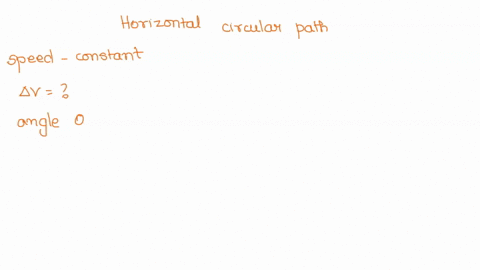 Horizontal circular path
speed - constant
Δv = ?
angle O